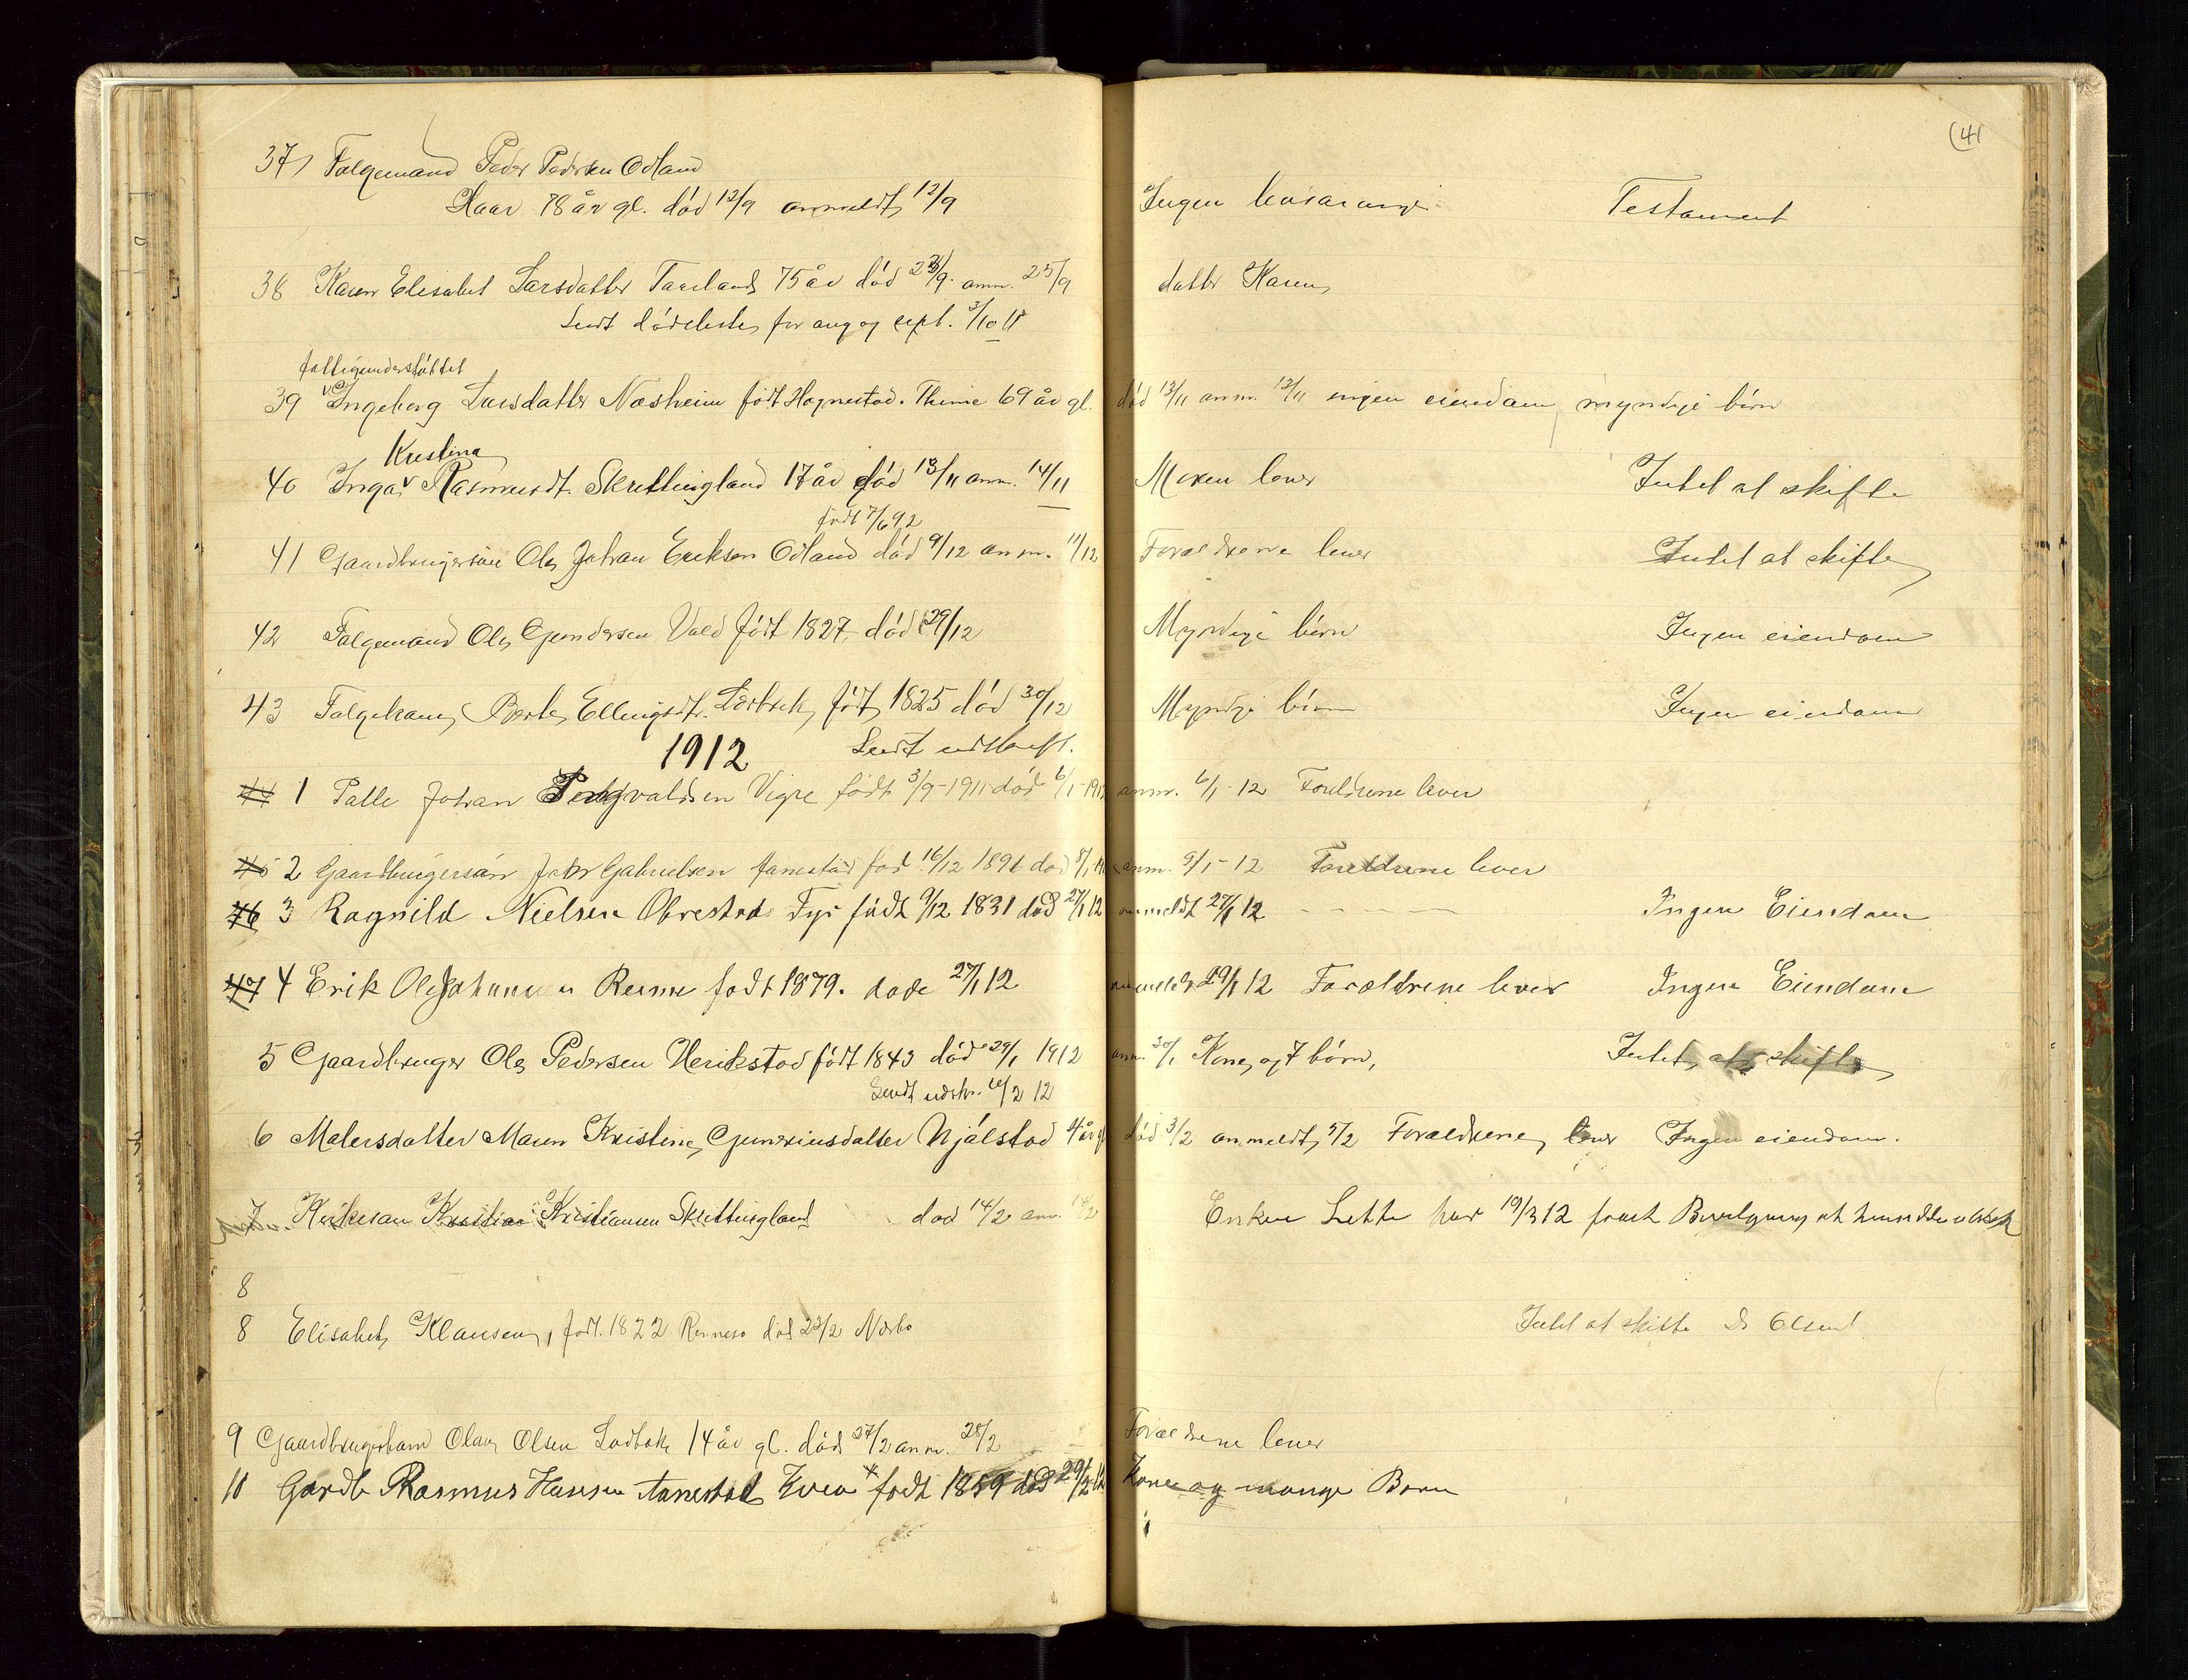 41
37 Folgemand Peder Pedersen Odland
Haar 78 år gl. död 12/9 anmeldt 12/9 Ingen Testament
38 Karen Elisabet Larsdatter 75 år död 23/9 anm. 25/9 datter Karen
Sendt dödsliste for aug og sept. 3/10 11
fattigunderstöttet
39 Ingeborg Larsdatter Næsheim født Hognestad. Thime 69 år gl. død 13/11 anm. 13/11 ingen eiendom myndige börn
Kristina
40 Inga Rasmusdt. Skretlingland 17 år död 13/11 anm. 14/11 Moren lever Intet at skifte
født 7/6 92
41 Gaardbrugersön Ole Johan Eriksen Odland död 9/12 anm. 11/12 Forældrene lever Intet at skifte
42 Folgemand Ole Gundersen Vold födt 1827 död 29/12 Myndige börn Ingen eiendom
43 Folgekone Berte Ellingsdtr. födt 1825 död 30/12 Myndige börn Ingen eiendom
1912 Sendt
44 1 Palle Johan Vigre födt 3/9-1911 död 6/1-1912 anm. 6/1-12 Forældrene lever
45 2 Gaardbrugersön Gabrielsen Aanestad fød 16/12 1896 død anm. 9/1-12 Forældrene lever
46 3 Ragnild Nielsen Obrestad Fyr födt 9/12 1831 död 27/1 12 anmeldt 27/1 12 - - - - Ingen Eiendom
47 4 Erik Ole Johannesen Reime født 1879. døde 27/1 12 anmeldt 29/1 12 Forældrene lever Ingen Eiendom
5 Gaardbruger Ole Pedersen Herikstad födt 1843 död 29/1 1912 anm. 30/1 Kone og 7 börn, Intet at skifte
Sendt udskr. 12
6 Malersdatter Maren Kristine Gunneriusdatter Njålstad 4 år gl død 3/2 anmeldt 5/2 Forældrene lever Ingen eiendom.
7 Kristian Kristiansen Skretlingland død 14/2 anm. 14/2 Enken har 19/3 12 faaet
8
8 Elisabet Klausen, født. 1822 Rennesø död 23/2 Nærbø Intet at skifte
9 Gaardbrugerbarn Olav Olsen Lodbok 14 år gl. död 27/2 anm. 28/2 Forældrene lever
10 Gardb Rasmus Hansen Aanestad født 1859 död 29/2 12 Kone og mange Børn